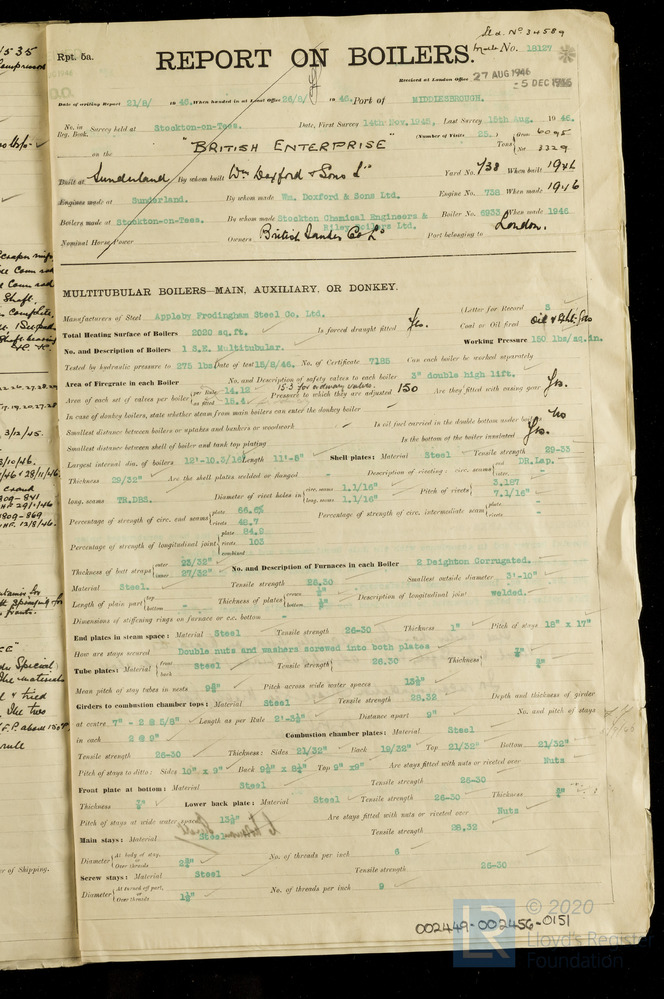 Rpt. 5a.
REPORT ON BOILERS.
No. 18127
Received at London Office 27 AUG 1946
5 DEC 1946
Date of writing Report 21/8/ 1946. When handed in at Local Office 26/8/ 1946. Port of MIDDLESBROUGH.
No. in Reg. Book. Survey held at Stockton-on-Tees. Date, First Survey 14th Nov. 1945, Last Survey 15th Aug. 1946.
(Number of Visits 25.) Gross 6095
on the "BRITISH ENTERPRISE" Tons Net 3329
Built at Sunderland By whom built Wm Doxford & Sons Ld Yard No. 738 When built 1946
Engines made at Sunderland. By whom made Wm. Doxford & Sons Ltd. Engine No. 738 When made 1946
Boilers made at Stockton-on-Tees. By whom made Stockton Chemical Engineers & Riley Boilers Ltd. Boiler No. 6933 When made 1946
Nominal Horse Power Owners British Tanker Co Ld Port belonging to London.
MULTITUBULAR BOILERS—MAIN, AUXILIARY, OR DONKEY.
Manufacturers of Steel Appleby Frodingham Steel Co. Ltd. (Letter for Record S
Total Heating Surface of Boilers 2020 sq.ft. Is forced draught fitted Yes. Coal or Oil fired Oil &
No. and Description of Boilers 1 S.E. Multitubular. Working Pressure 150 lbs/sq.in.
Tested by hydraulic pressure to 275 lbs Date of test 15/8/46. No. of Certificate 7185 Can each boiler be worked separately
Area of Firegrate in each Boiler No. and Description of safety valves to each boiler 3" double high lift.
Area of each set of valves per boiler per Rule 14.12 as fitted 15.4 Pressure to which they are adjusted 150 Are they fitted with easing gear Yes.
In case of donkey boilers, state whether steam from main boilers can enter the donkey boiler No
Smallest distance between boilers or uptakes and bunkers or woodwork Is oil fuel carried in the double bottom under boilers
Smallest distance between shell of boiler and tank top plating Is the bottom of the boiler insulated Yes.
Largest internal dia. of boilers 12'-10.3/16" Length 11'-6" Shell plates: Material Steel Tensile strength 29-33
Thickness 29/32" Are the shell plates welded or flanged - Description of riveting: circ. seams end DR.Lap. inter. -
long. seams TR.DBS. Diameter of rivet holes in circ. seams 1.1/16" long. seams 1.1/16" Pitch of rivets 3.187 7.1/16"
Percentage of strength of circ. end seams plate 66.6% rivets 48.7 Percentage of strength of circ. intermediate seam plate - rivets -
Percentage of strength of longitudinal joint plate 84.9 rivets 103 combined
Thickness of butt straps outer 23/32" inner 27/32" No. and Description of Furnaces in each Boiler 2 Deighton Corrugated.
Material Steel. Tensile strength 26.30 Smallest outside diameter 3'-10"
Length of plain part top - bottom - Thickness of plates crown bottom Description of longitudinal joint welded.
Dimensions of stiffening rings on furnace or c.c. bottom -
End plates in steam space: Material Steel Tensile strength 26-30 Thickness 1" Pitch of stays 18" x 17"
How are stays secured Double nuts and washers screwed into both plates
Tube plates: Material front back Steel Tensile strength 26.30 Thickness
Mean pitch of stay tubes in nests Pitch across wide water spaces 13½"
Girders to combustion chamber tops: Material Steel Tensile strength 28.32 Depth and thickness of girder
at centre 7" - 2 @ 5/8" Length as per Rule Distance apart 9" No. and pitch of stays
in each 2 @ 9" Combustion chamber plates: Material Steel
Tensile strength 26-30 Thickness: Sides 21/32" Back 19/32" Top 21/32" Bottom 21/32"
Pitch of stays to ditto: Sides 10" x 9" Back Top 9" x 9" Are stays fitted with nuts or riveted over Nuts
Front plate at bottom: Material Steel Tensile strength 26-30
Thickness Lower back plate: Material Steel Tensile strength 26-30 Thickness
Pitch of stays at wide water space 13½" Are stays fitted with nuts or riveted over Nuts
Main stays: Material Steel Tensile strength 28.32
Diameter At body of stay, or Over threads No. of threads per inch 6
Screw stays: Material Steel Tensile strength 26-30
Diameter At turned off part, or Over threads No. of threads per inch 9
002449-002456-0151
LR © 2020
Lloyd's Register
Foundation